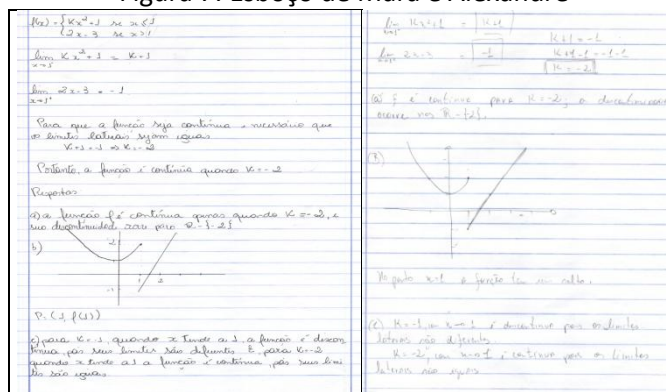 Figura 7: Esboço de Mara e Alexandre
f(x) = { Kx² + 1 se x ≤ 1
{ 2x - 3 se x > 1
lim Kx² + 1 = K + 1
x→1⁻
lim 2x - 3 = -1
x→1⁺
Para que a função seja contínua é necessário que
os limites laterais sejam iguais
K + 1 = -1 ⇒ K = -2
Portanto, a função é contínua quando K = -2
Respostas
a) a função f é contínua apenas quando K = -2, e
sua descontinuidade para R - {-2}
b)
P. (1, f(1))
c) para K = 1, quando x tende a 1, a função é descon
tínua, pois seus limites são diferentes. E, para K = -2
quando x tende a 1 a função é contínua, pois seus limi
tes são iguais.
lim Kx² + 1 = K+1
x→1⁻
lim 2x - 3 = -1
x→1⁺
K + 1 = -1
K + 1 - 1 = -1 - 1
K = -2
(a) f é contínua para K = -2, a descontinuidade
ocorre nos R - {-2}.
(B)
No ponto x = 1 a função tem um salto.
(c) K = 1, x→1 é descontínua pois os limites
laterais são diferentes.
K = -2, x→1 é contínua pois os limites
laterais são iguais